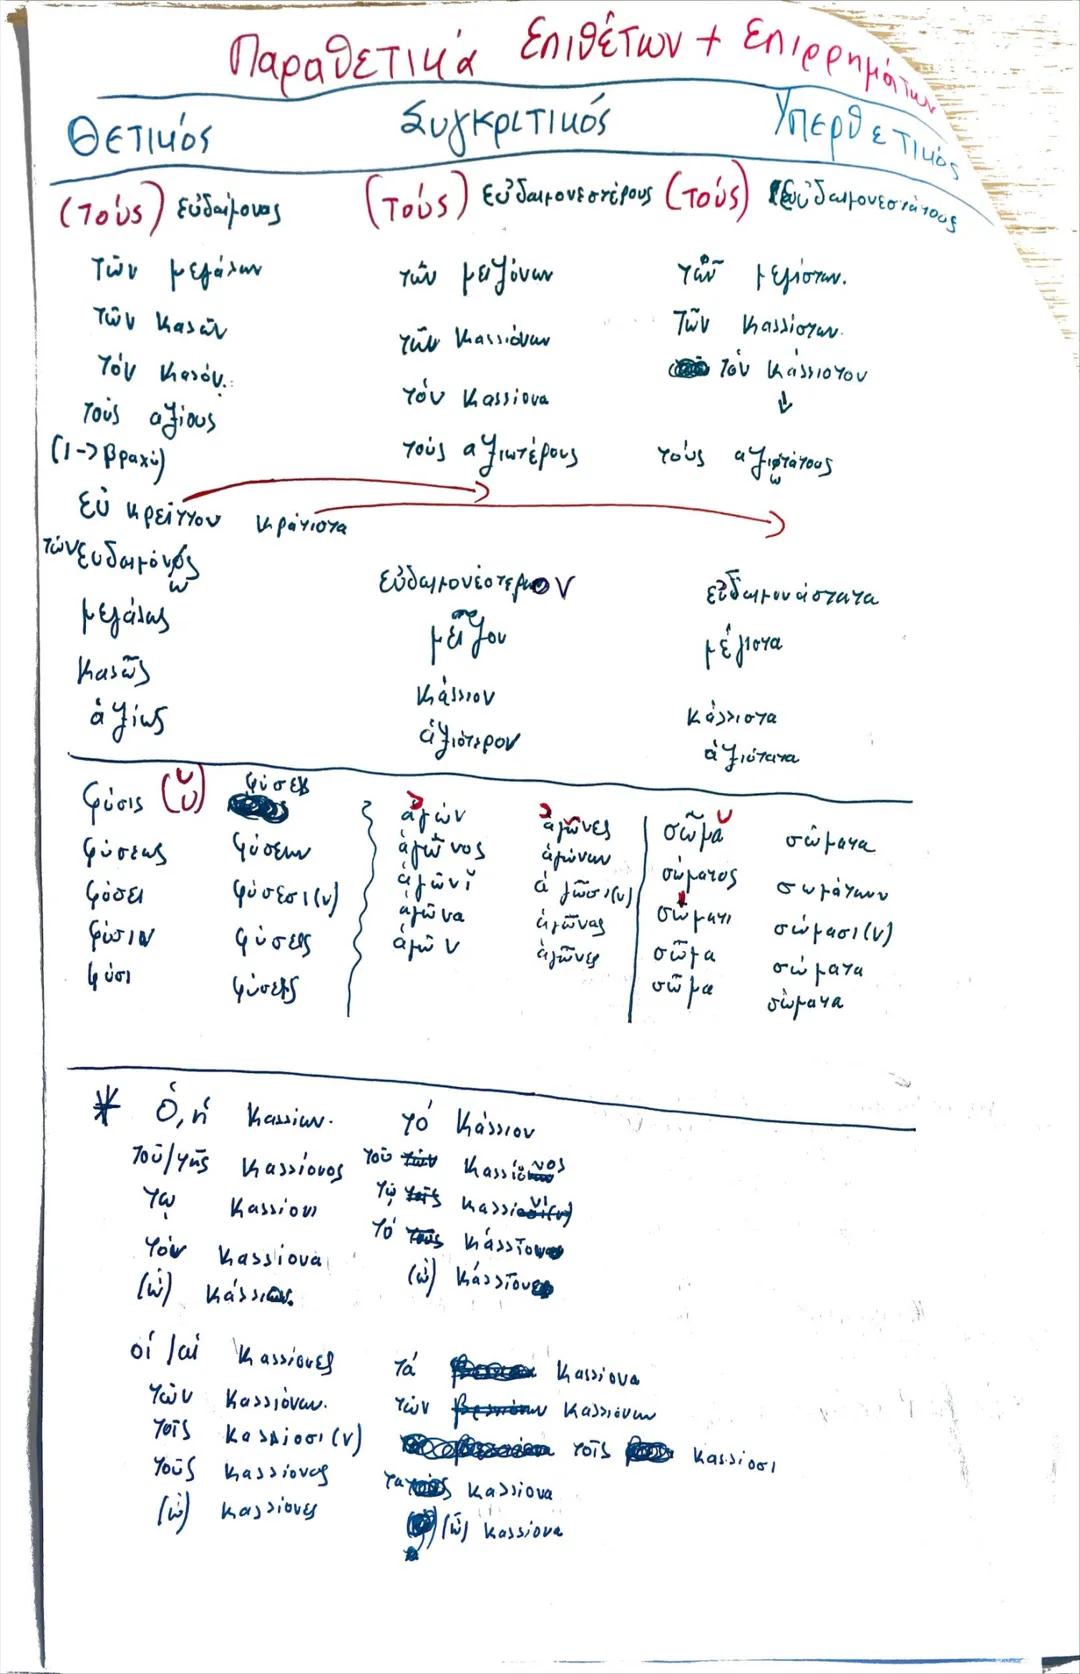 Παραθετικά Επιθέτων + Επιρρημάτων
Θετικός Συγκριτικός Υπερθετικός
(Τούς) εὐδαίμονας (Τούς) εὐδαιμονεστέρους (Τούς) εὐδαιμονεστάτους
τῶν μεγάλων τῶν μειζόνων τῶν μεγίστων.
τῶν καλῶν τῶν καλλιόνων τῶν καλλίστων.
τόν καλόν. τόν καλλίονα τόν κάλλιστον
τούς αξίους τούς αξιωτέρους τούς αξιωτάτους
(ι -> βραχύ)
εὐ κρεῖττον κράτιστα
τῶν εὐδαιμόνως εὐδαιμονέστερον εὐδαιμονέστατα
μεγάλως μεῖζον μέγιστα
καλῶς κάλλιον κάλλιστα
ἀξίως ἀξιότερον ἀξιότατα
φύσις (υ) φύσεις ἀγών ἀγῶνες σῶμα σώματα
φύσεως φύσεων ἀγῶνος ἀγώνων σώματος σωμάτων
φύσει φύσεσι(ν) ἀγῶνι ἀγῶσι(ν) σώματι σώμασι(ν)
φύσιν φύσεις ἀγῶνα ἀγῶνας σῶμα σώματα
φύσι φύσεις ἀγών ἀγῶνες σῶμα σώματα
* Ὁ, ἡ καλλίων. τό κάλλιον
τοῦ/τῆς καλλίονος τοῦ καλλίονος
τῳ καλλίονι τῷ καλλίονι
τόν καλλίονα τό κάλλιον
(ὦ) κάλλιον. (ὦ) κάλλιον
οἱ /αἱ καλλίονες τά καλλίονα
τῶν καλλιόνων. τῶν καλλιόνων
τοῖς καλλίοσι(ν) τοῖς καλλίοσι
τούς καλλίονας τα καλλίονα
(ὦ) καλλίονες (ὦ) καλλίονα